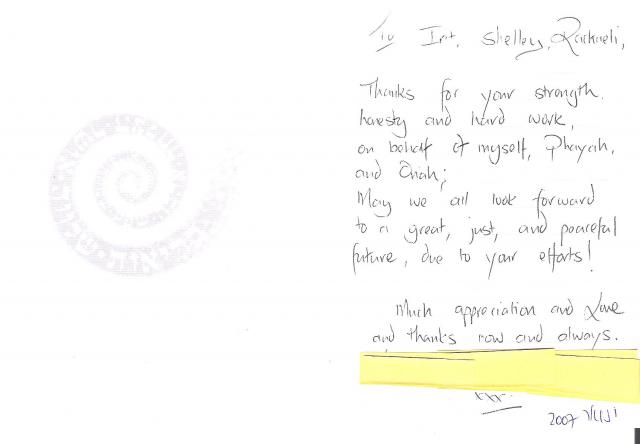 To Irit, Shelley, Rachaeli,
Thanks for your strength,
honesty and hard work,
on behalf of myself,
and
May we all look forward
to a great, just, and peaceful
future, due to your efforts!
Much appreciation and Love
and thanks now and always.
xxx.
2007